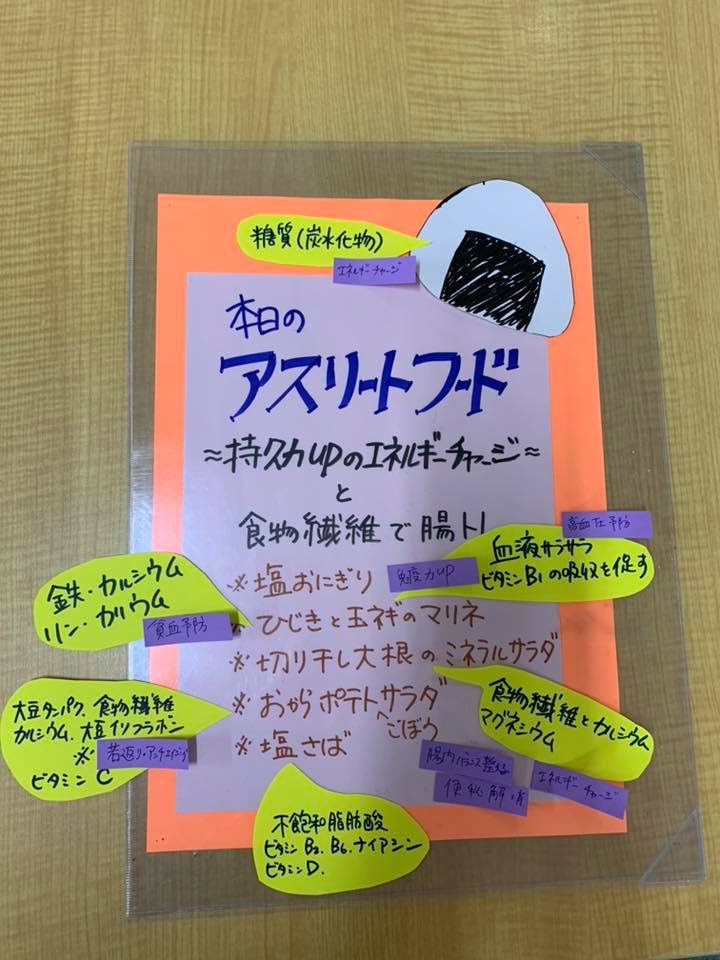 糖質(炭水化物)
エネルギーチャージ
本日の
アスリートフード
≈持久力upのエネルギーチャージ≈
と
食物繊維で腸トレ
高血圧予防
血液サラサラ
ビタミンB₁の吸収を促す
免疫力up
※塩おにぎり
鉄・カルシウム
リン・カリウム
貧血予防
※ひじきと玉ネギのマリネ
※切り干し大根のミネラルサラダ
※おからポテトサラダ
ごぼう
※塩さば
大豆タンパク、食物繊維
カルシウム、大豆イソフラボン
※
若返り・アンチエイジング
ビタミンC
食物繊維とカルシウム
マグネシウム
エネルギーチャージ
腸内バランス整える
便秘解消
不飽和脂肪酸
ビタミンB₂、B₆、ナイアシン
ビタミンD.